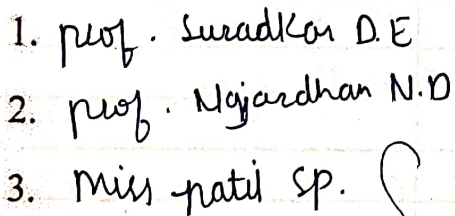 1. prof. Suradkar D.E
2. prof. Najardhan N.D
3. Miss patil sp.